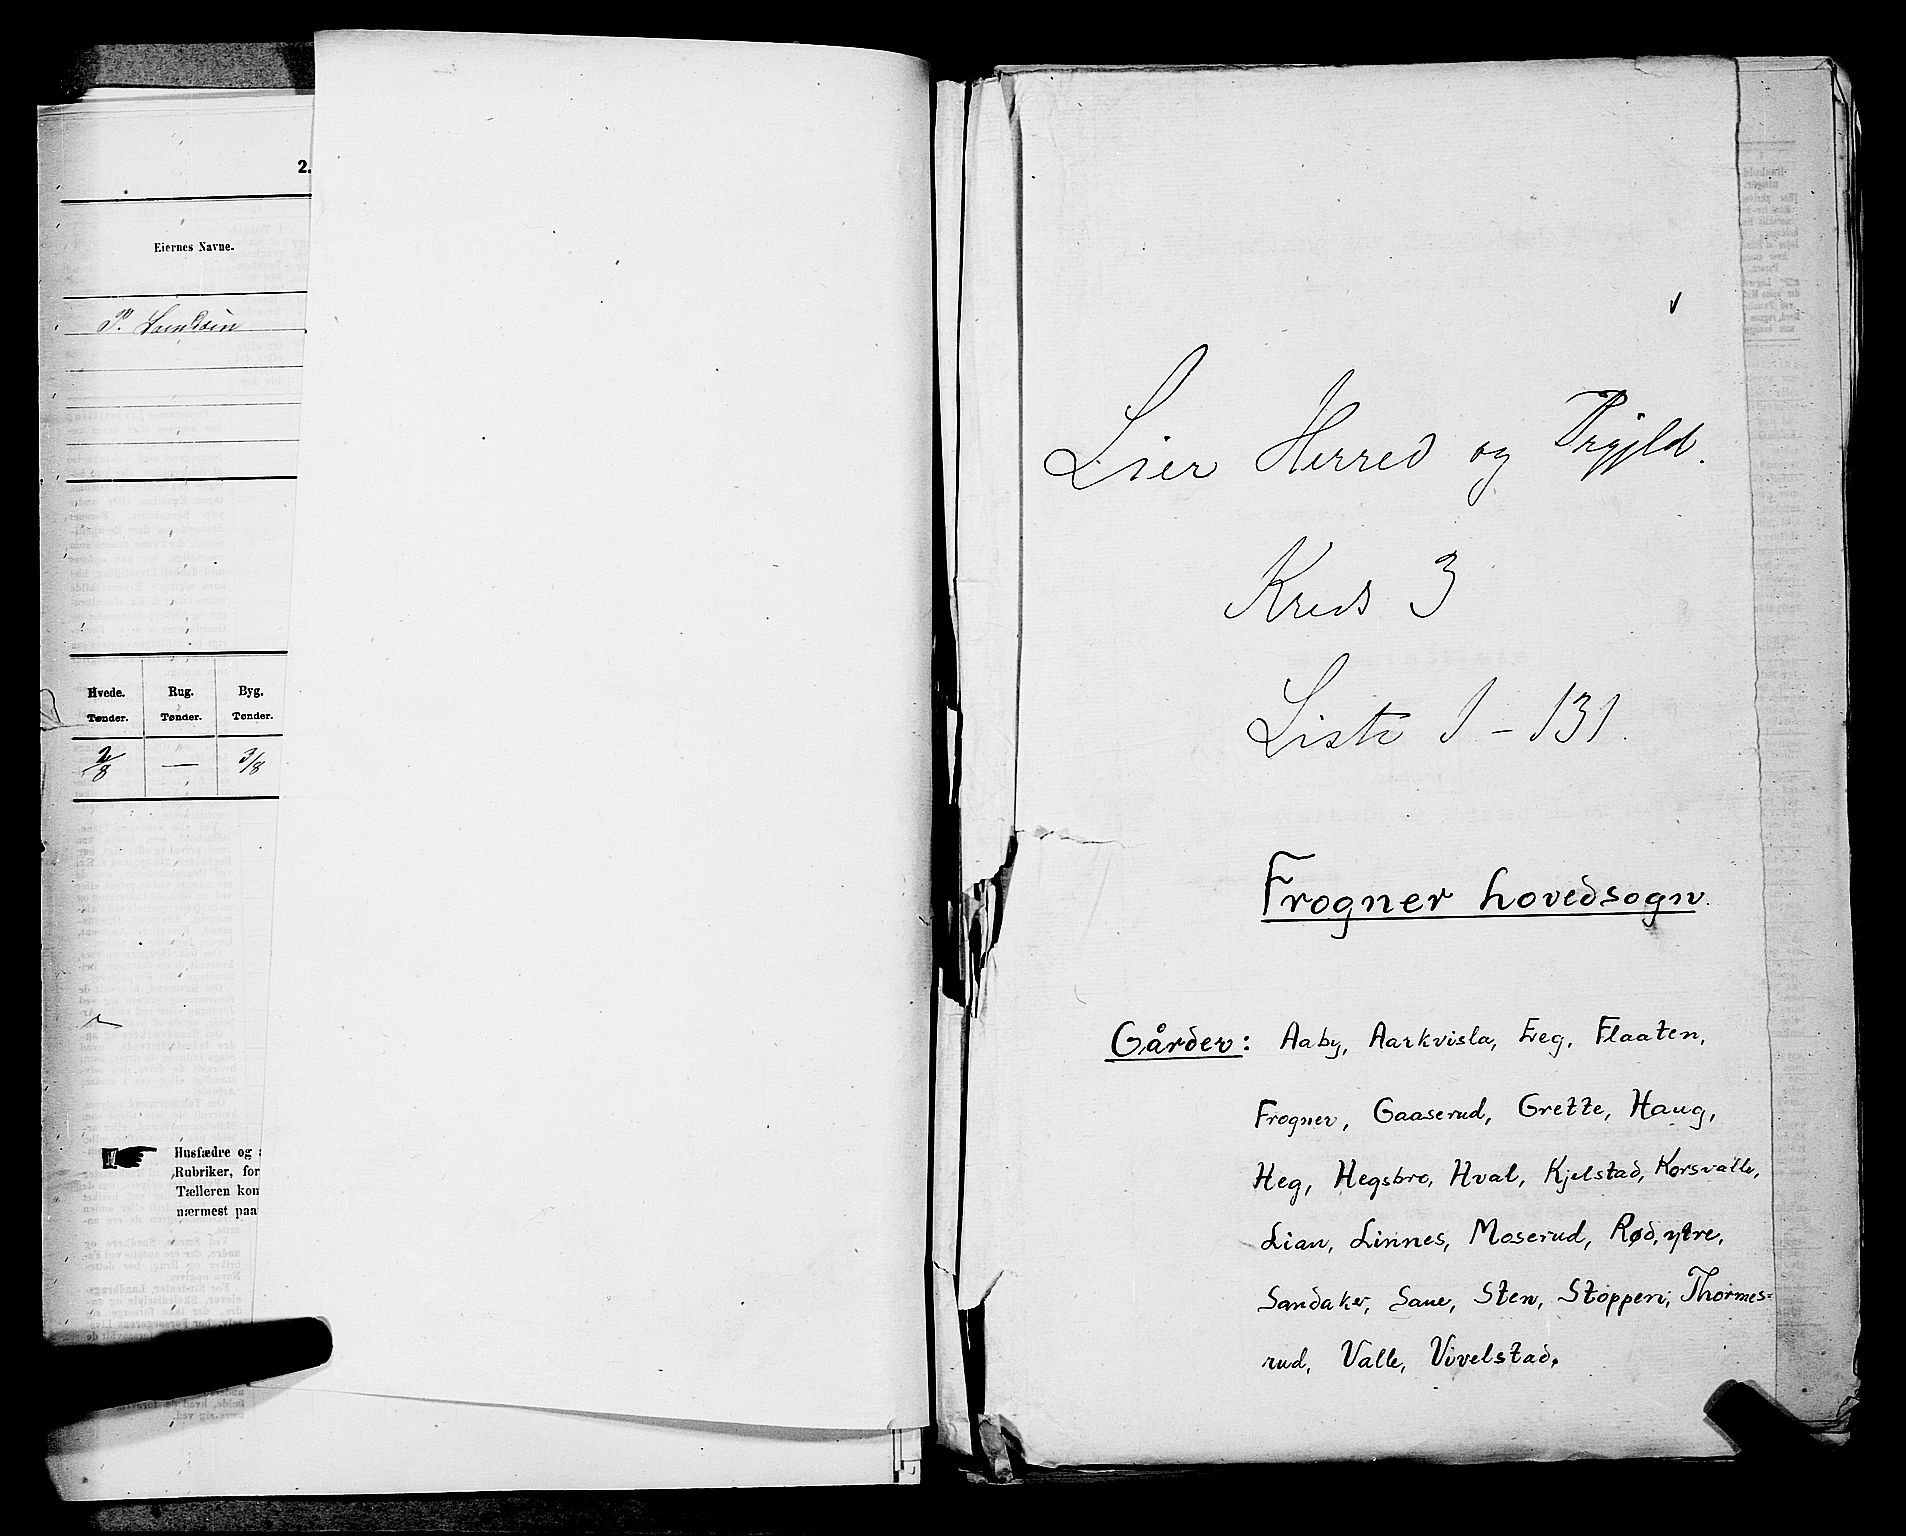 2.
Eiernes Navne.
P.
Hvede. Rug. Byg.
Tønder. Tønder. Tønder.
2/8 — 3/8
Husfædre og
Rubriker, for
Tælleren kon
nærmest paa
Lier Herred og Prgjld.
Kreds 3
Liste 1 - 131.
Frogner hovedsogn.
Gårder: Aaby, Aarkvisla, Eeg, Flaaten,
Frogner, Gaaserud, Grette, Haug,
Heg, Hegsbro, Hval, Kjelstad, Korsvalle,
Lian, Linnes, Moserud, Rød, ytre,
Sandaker, Saue, Sten, Stoppen, Thormes=
rud, Valle, Vivelstad.